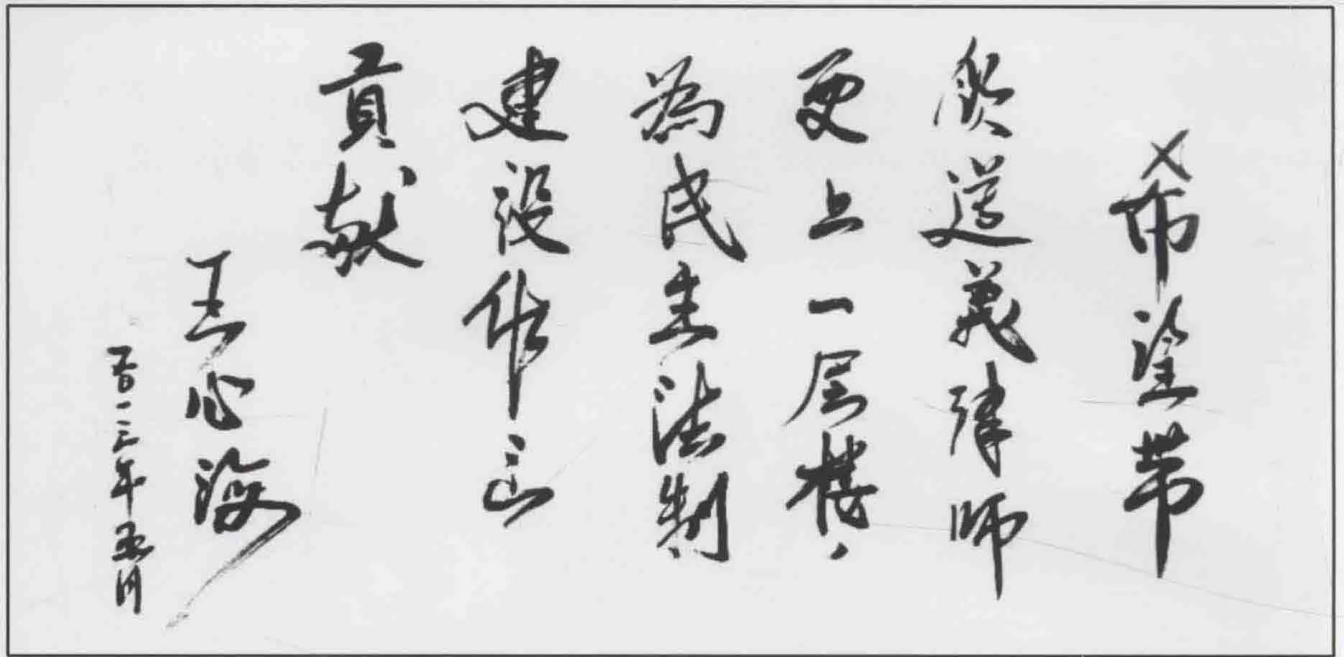 希望带
领道義律师
更上一层楼，
為民主法制
建设作出
貢献
王心海
二〇一三年五月